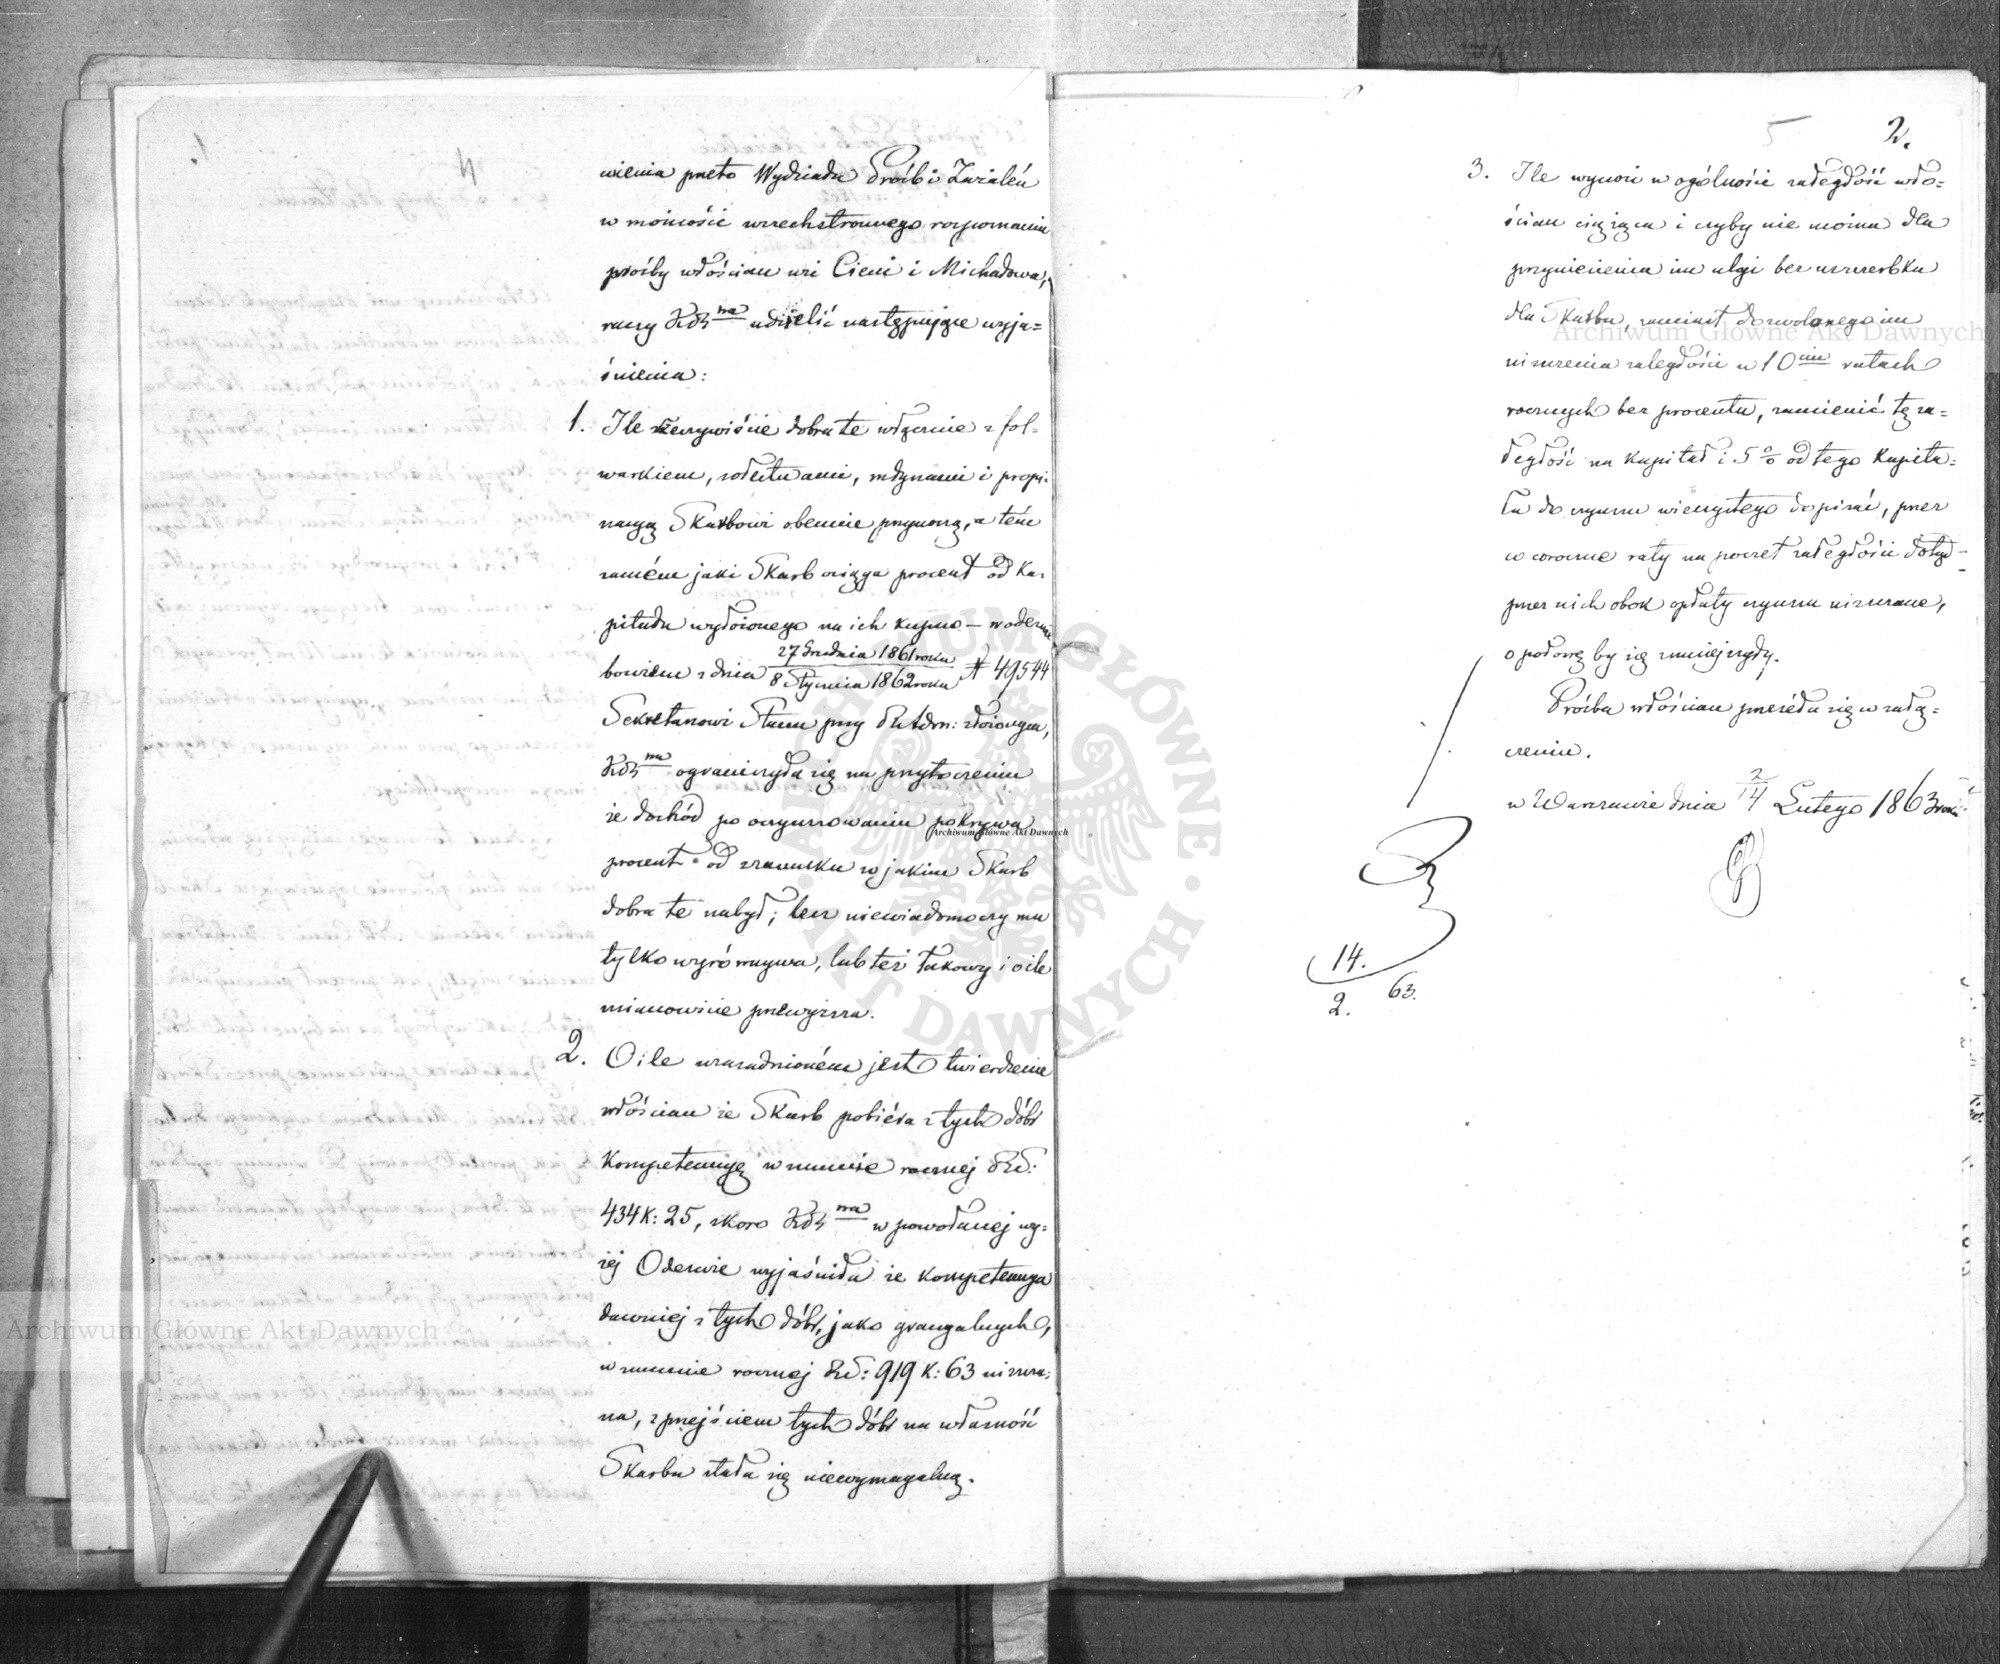 4
wienia przeto Wydziału Próśb i Zażaleń
w możności wszechstronnego rozpoznania
prośby włościan wsi Cieni i Michałowa,
raczy udzielić następujące wyja=
śnienia:
1. Ile rzeczywiście dobra te włącznie z fol-
warkiem, sołectwami, młynami i propi-
nacyą Skarbowi obecnie przynoszą, a tém
samém jaki Skarb osiąga procent od Ka-
pitału wyłożonego na ich kupno – w odezwie
bowiem z dnia 27 Grudnia 1861 roku / 8 Stycznia 1862 roku № 49544
Sekretarzowi Stanu przy złożonym,
ograniczyła się na przytoczeniu
że dochód po oczynszowaniu pokrywa
procent od szacunku w jakim Skarb
dobra te nabył; lecz niewiadomo czy mu
tylko wyrównywa, lub też takowy i o ile
mianowicie przewyższa.
2. O ile uzasadnioném jest twierdzenie
włościan że Skarb pobiéra z tych dóbr
Kompetencyą w summie rocznej
434 K: 25, skoro w powołanej wy=
żej Odezwie wyjaśniła że kompetencya
dawniej z tych dóbr, jako gracyalnych,
w summie rocznej 919 K: 63 uiszcza-
na, z przejściem tych dóbr na własność
Skarbu stała się niewymagalną.
5
2.
3. Ile wynosi w ogólności zaległość wło=
ścian ciążąca i czyby nie można dla
przyniesienia im ulgi bez uszczerbku
dla Skarbu, zamiast dozwolonego im
uiszczenia zaległości w 10ciu ratach
rocznych bez procentu, zamienić tę za=
ległość na Kapitał i 5% od tego Kapita=
łu do czynszu wieczystego dopisać, przez
co coroczne raty na poczet zaległości dotąd
przez nich obok opłaty czynszu uiszczane,
o połowę by się zmniejszyły.
Prośba włościan przeséła się w załą=
czeniu.
w Warszawie dnia 2/14 Lutego 1863 roku
14.
2. 63.
Archiwum Główne Akt Dawnych
Archiwum Główne Akt Dawnych
Archiwum Główne Akt Dawnych
ARCHIWUM GŁÓWNE AKT DAWNYCH